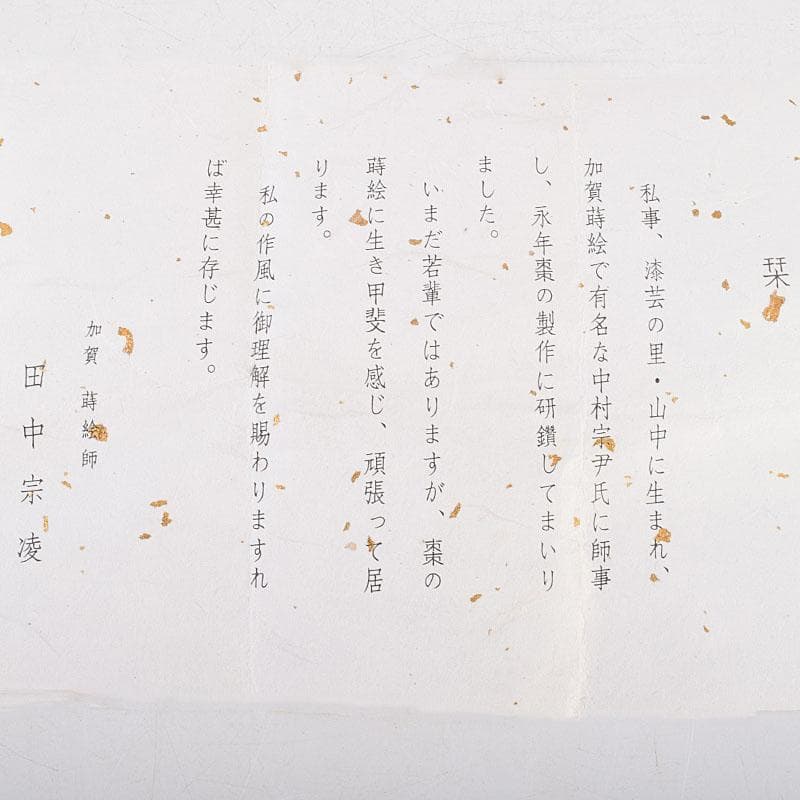 栞
私事、漆芸の里・山中に生まれ、
加賀蒔絵で有名な中村宗尹氏に師事
し、永年棗の製作に研鑽してまいり
ました。
いまだ若輩ではありますが、棗の
蒔絵に生き甲斐を感じ、頑張って居
ります。
私の作風に御理解を賜わりますれ
ば幸甚に存じます。
加賀 蒔絵師
田中宗凌